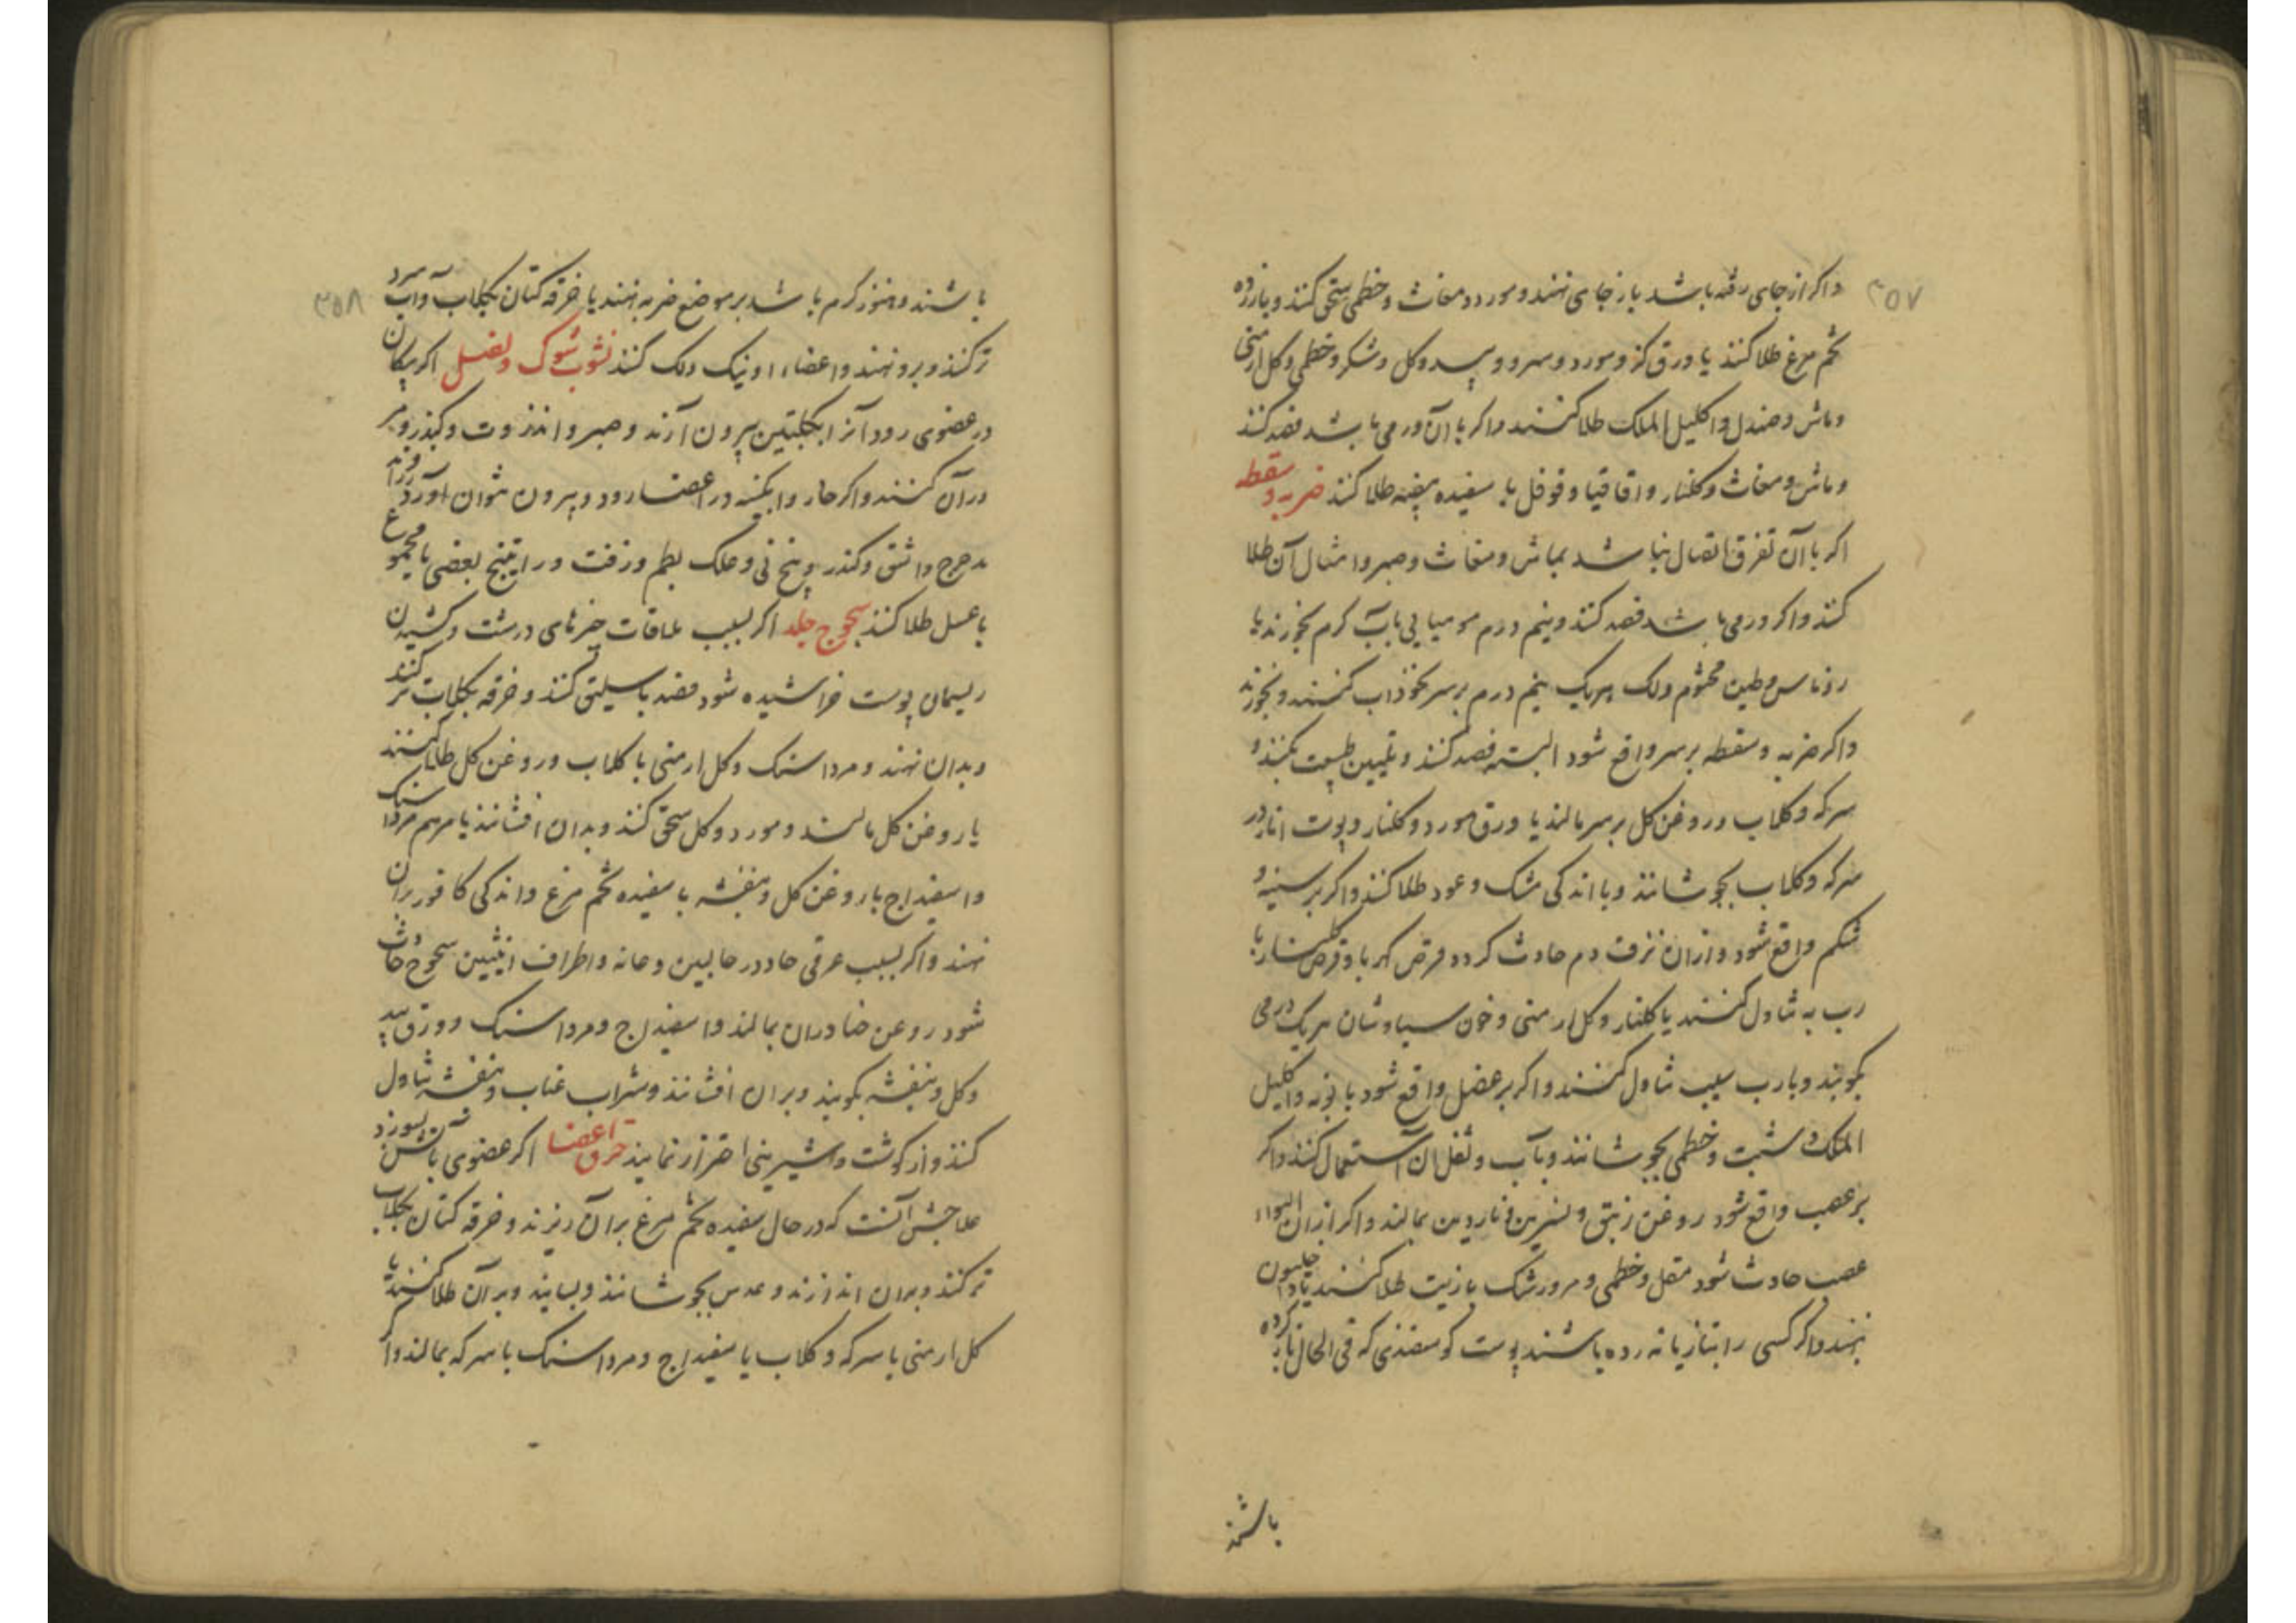 ۳۵۷
واکر از جای رفته باشد باز جای نهند و مورد و مغاث و خطمی سحق کنند و با زرده
تخم مرغ طلا کنند یا ورق کز و مورد و سرو و بید و کل و شکر و خطمی و کل ارمنی
و ماش و صندل و اکلیل الملک طلا کنند و اکر با آن ورمی باشد فصد کنند
و ماش و مغاث و کلنار و اقاقیا و فوفل با سفیده بیضه طلا کنند ضربه و سقطه
اکر با آن تفرق اتصال نباشد بماش و مغاث و صبر و امثال آن طلا
کنند و اکر ورمی باشد فصد کنند و نیم درم مومیایی بآب کرم بخورند یا
روناس و طین مختوم و لک هریک نیم درم بر سر نخوذاب کنند و بخورند
واکر ضربه و سقطه بر سر واقع شود البته فصد کنند و تلیین طبیعت بکنند و
سرکه و کلاب و روغن کل بر سر مالند یا ورق مورد و کلنار و پوست انار در
سرکه و کلاب بجوشانند و با اندکی مشک و عود طلا کنند و اکر بر سینه و
شکم واقع شود و ازان نزف دم حادث کردد قرص کهربا و قرص کلنار با
رب به تناول کنند یا کلنار و کل ارمنی و خون سیاوشان هریک درمی
بکوبند و با رب سیب تناول کنند و اکر بر عضل واقع شود بابونه و اکلیل
الملک و شبت و خطمی بجوشانند و بآب و ثفل آن استعمال کنند و اکر
بر عصب واقع شود روغن زنبق و نسرین و ناردین بمالند و اکر ازان التواء
عصب حادث شود مقل و خطمی و مرورشک با زیت طلا کنند یا داخلیون
نهند و اکر کسی را بتازیانه زده باشند پوست کوسفندی که فی الحال باز کرده
باشند
۳۵۸
باشند و هنوز کرم باشد بر موضع ضربه نهند یا خرقه کتان بکلاب و آب سرد
تر کنند و برو نهند و اعضاء او نیک دلک کنند نشوب شوک و نصل اکر پیکان
در عضوی رود آنرا بکلبتین بیرون آرند و صبر و انذزوت و کندر و بر
در آن کنند و اکر خار و ابکینه در اعضا رود و بیرون نتوان آورد زراوند
مدحرج و اشق و کندر و بیخ نی و علک بطم و زفت و راتینج بعضی یا مجموع
با عسل طلا کنند سحوج جلد اکر بسبب ملاقات چیزهای درشت و کشیدن
ریسمان پوست خراشیده شود فصد باسلیق کنند و خرقه بکلاب تر کنند
و بدان نهند و مرداسنک و کل ارمنی با کلاب و روغن کل طلا کنند
یا روغن کل بمالند و مورد و کل سحق کنند و بدان افشانند یا مرهم مرداسنک
و اسفیداج با روغن کل و بنفشه با سفیده تخم مرغ و اندکی کافور بران
نهند و اکر بسبب عرقی حاد در حالبین و عانه و اطراف انثیین سحوج حادث
شود روغن حنا دران بمالند و اسفیداج و مرداسنک و ورق بید
و کل و بنفشه بکوبند و بران افشانند و شراب عناب و بنفشه تناول
کنند و از کوشت و شیرینی احتراز نمایند حرق اعضا اکر عضوی بآتش بسوزد
علاجش آنست که در حال سفیده تخم مرغ بر آن ریزند و خرقه کتان بکلاب
تر کنند و بران اندازند و عدس بجوشانند و بسایند و بر آن طلا کنند یا
کل ارمنی با سرکه و کلاب یا سفیداج و مرداسنک با سرکه بمالند و ا